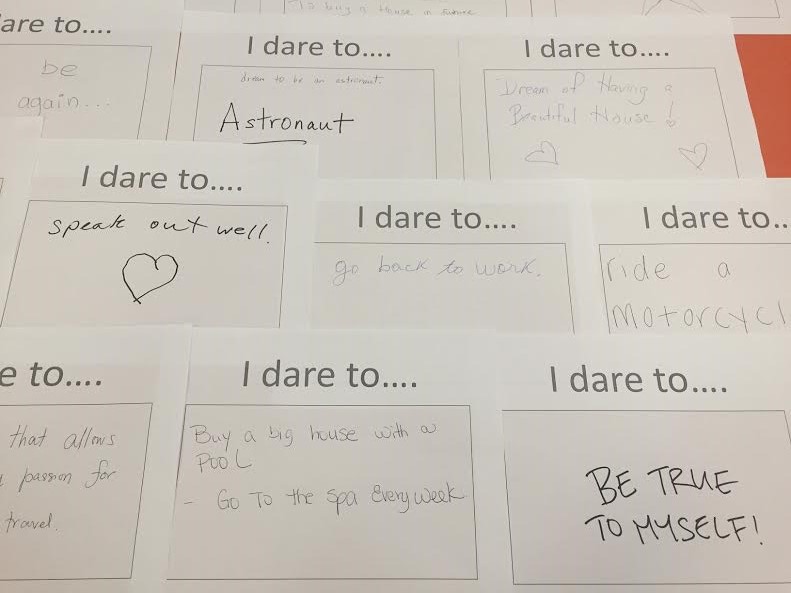 To buy a House in future
are to....
be
again...
I dare to....
dream to be an astronaut.
Astronaut
I dare to....
Dream of Having a
Beautiful House!
I dare to....
speak out well.
I dare to....
go back to work.
I dare to..
ride a
Motorcycl
e to....
that allows
passion for
travel.
I dare to....
Buy a big house with a
POOL
- Go To the Spa Every week
I dare to....
BE TRUE
TO MYSELF!